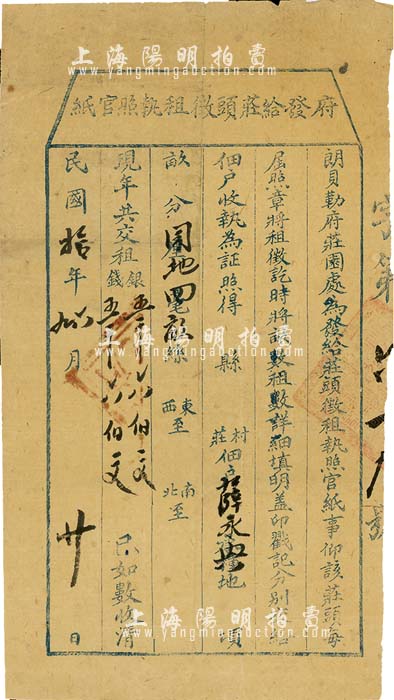 府發給莊頭徵租執照官紙
字第 號
朗貝勒府莊園處為發給莊頭徵租執照官紙事仰該莊頭每
屆照章將租徵訖時將該數租數詳細填明蓋印戳記分別 給
佃戶收執為証照得 縣 村莊 佃戶薛永興種地 頃
畝 分 園地四 畝 係 東至 西至 南至 北至
現年共交租 銀 錢 五 六伯文 只如數收清
民國拾年 月 卅 日
上海陽明拍賣
www.yangmingauction.com
上海陽明拍賣
www.yangmingauction.com
上海陽明拍賣
www.yangmingauction.com